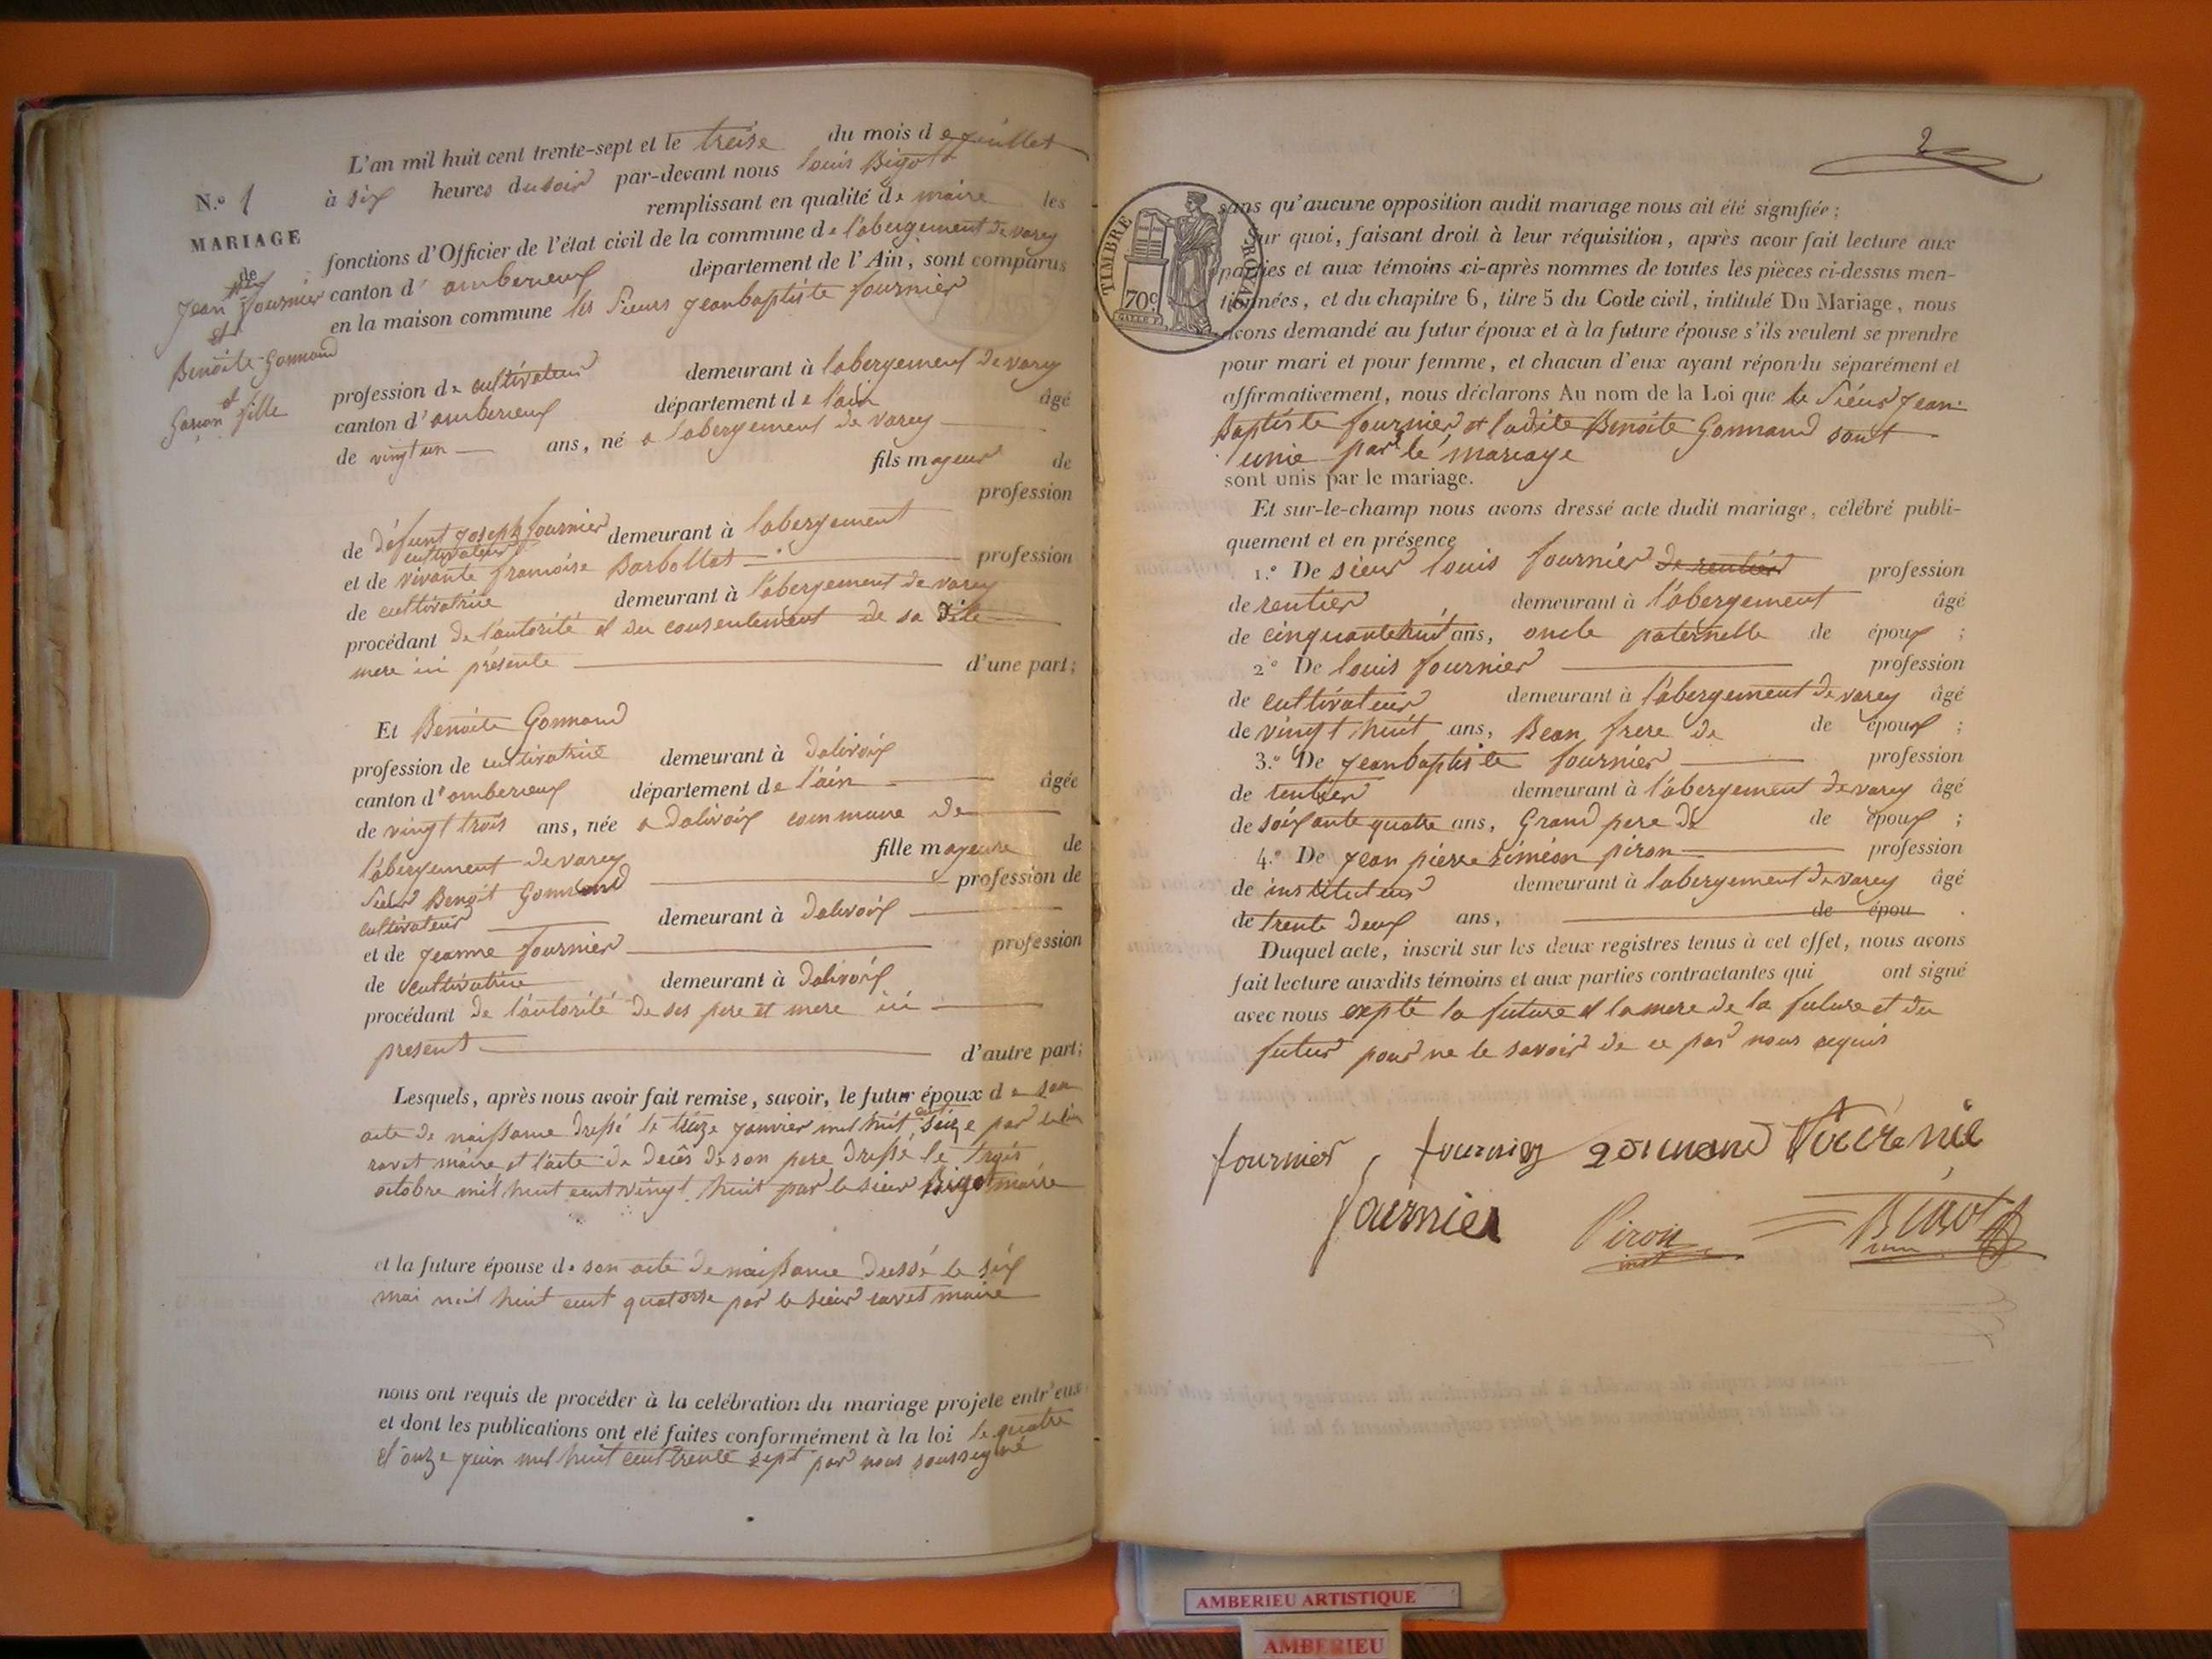 L'an mil huit cent trente-sept et le treise du mois de juillet
N.º 1 à six heures du soir par-devant nous louis Bigot
remplissant en qualité de maire les
MARIAGE
fonctions d'Officier de l'état civil de la commune de l'abergement de varey
de
Jean fournier
et
Benoite Gonnand
et
Garson fille
canton d'amberieux département de l'Ain, sont comparus
en la maison commune les sieurs jean baptiste fournier
profession de cultivateur demeurant à labergement de varey
canton d'amberieux département de l'ain âgé
de vingt un ans, né a labergement de varey
fils majeur de
profession
de défunt joseph fournier demeurant à labergement
cultivateur
et de vivante francoise Barbollat profession
de cultivatrice demeurant à l'abergement de varey
procédant de l'autorité et du consentement de sa dite
mere ici présente d'une part;
Et Benoite Gonnand
profession de cultivatrice demeurant à dalivoix
canton d'amberieux département de l'ain âgée
de vingt trois ans, née a dalivoix commune de
l'abergement de varey fille majeure de
sieur Benoit Gonnand profession de
cultivateur demeurant à dalivoix
et de jeanne fournier profession
de cultivatrice demeurant à dalivoix
procédant de l'autorité de ses pere et mere ici
present d'autre part;
Lesquels, après nous avoir fait remise, savoir, le futur époux de son
acte de naissance dressé le treize janvier mil huit cent seize par
ravet maire et l'acte de decès de son pere dressé le trois
octobre mil huit cent vingt huit par le sieur Bigot maire
et la future épouse de son acte de naissance dressé le six
mai mil huit cent quatorse par le sieur ravet maire
nous ont requis de procéder à la celébration du mariage projete entr'eux
et dont les publications ont eté faites conformément à la loi le quatre
et onze juin mil huit cent trente sept par nous soussigné
2
TIMBRE ROYAL
70c
sans qu'aucune opposition audit mariage nous ait été signifiée;
Sur quoi, faisant droit à leur réquisition, après avoir fait lecture aux
parties et aux témoins ci-après nommes de toutes les pièces ci-dessus men-
tionnées, et du chapitre 6, titre 5 du Code civil, intitulé Du Mariage, nous
avons demandé au futur époux et à la future épouse s'ils veulent se prendre
pour mari et pour femme, et chacun d'eux ayant répondu séparément et
affirmativement, nous déclarons Au nom de la Loi que le sieur jean
Baptiste fournier et ladite Benoite Gonnand sont
unie par le mariage
sont unis par le mariage.
Et sur-le-champ nous avons dressé acte dudit mariage, célébré publi-
quement et en présence
1.º De sieur louis fournier de rentier profession
de rentier demeurant à l'abergement âgé
de cinquante huit ans, oncle paternelle de époux ;
2º De louis fournier profession
de cultivateur demeurant à l'abergement de varey âgé
de vingt huit ans, Beau frere de de époux ;
3.º De jean baptiste fournier profession
de rentier demeurant à l'abergement de varey âgé
de soixante quatre ans, Grand pere de de époux ;
4.º De jean pierre siméon piron profession
de instituteur demeurant à labergement de varey âgé
de trente deux ans, de épou .
Duquel acte, inscrit sur les deux registres tenus à cet effet, nous avons
fait lecture auxdits témoins et aux parties contractantes qui ont signé
avec nous expté la future et la mere de la future et du
futur pour ne le savoir de ce par nous requis
fournier, fournier gonnand
fournier Piron Bigot
inst
AMBERIEU ARTISTIQUE
AMBERIEU